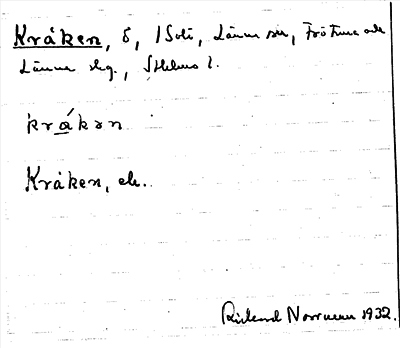 Kråken, ö, i Sol, Länna sn, Frötuna och
Länna skg., Sthlms l.
kråkən
Kråken, ek.
Rickard Norrman 1932.